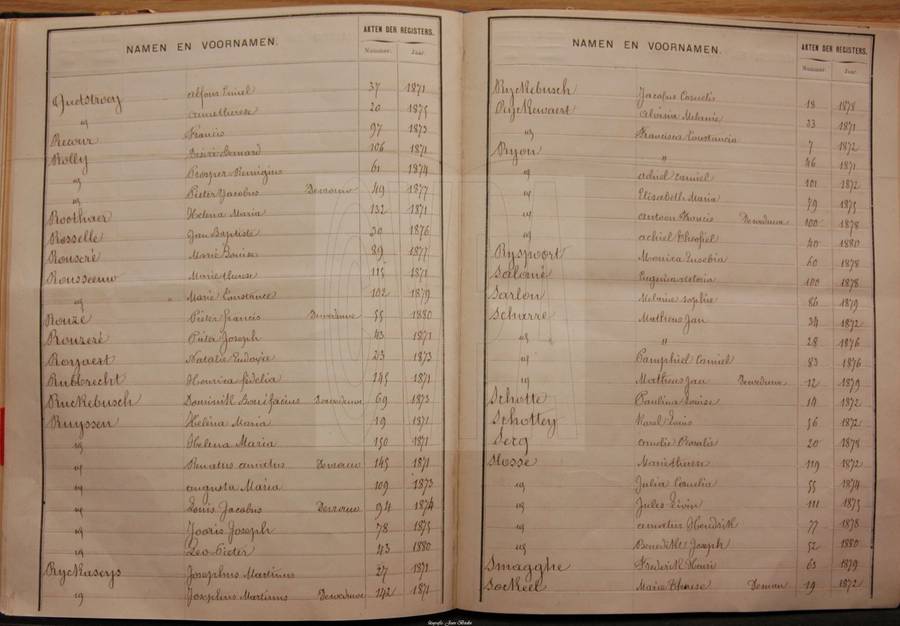 NAMEN EN VOORNAMEN. AKTEN DER REGISTERS.
Nummer. Jaar.
Alfons Emiel 37 1871
20 1875
Francis 97 1873
Rolly Bernard 106 1871
Prosper Remigius 61 1874
Pieter Jacobus 49 1877
Roothaer Helena Maria 132 1871
Rosselle Jan Baptiste 30 1876
Rouseré Marie Louise 89 1877
Rousseeuw Marie Therese 115 1871
" Marie Constance 102 1879
Rouzé Pieter Francis 55 1880
Rouzeré Pieter Joseph 43 1871
Natalie Ludovica 23 1873
Rubbrecht Henrica Fidelia 145 1871
Ruckebusch Dominik Bonifacius 69 1873
Ruyssen Helena Maria 19 1871
Helena Maria 150 1871
Renatus Amatus 145 1871
Augusta Maria 109 1873
Louis Jacobus 94 1874
Jooris Joseph 78 1875
Leo Pieter 43 1880
Ryckaseys Josephus Martinus 27 1871
Josephus Martinus 142 1871
NAMEN EN VOORNAMEN. AKTEN DER REGISTERS.
Nummer. Jaar.
Ryckebusch Jacobus Cornelis 18 1878
Ryckewaert Aloisia Melanie 33 1871
Francisca Constancia 7 1872
Ryon " 46 1871
Achiel Camiel 101 1872
Elisabeth Maria 79 1875
Antoon Francis 100 1878
Achiel Theofiel 40 1880
Ryspoort Monica Eusebia 60 1878
Salomé Eugenia Victoria 100 1878
Sarlon Melanie Sophie 86 1879
Scharre Matheus Jan 34 1872
" 28 1876
Pamphiel Camiel 83 1876
Matheus Jan 12 1879
Schotte Paulina Louise 14 1872
Schottey Karel Louis 56 1872
Serg Amelie Rosalie 20 1878
Slosse Marie Therese 119 1872
Julia Cornelia 55 1874
Jules Livin 111 1875
Amatus Hendrik 77 1878
Benedikt Joseph 52 1880
Smagghe Frederik Henri 63 1879
Marie Therese Deman 19 1872